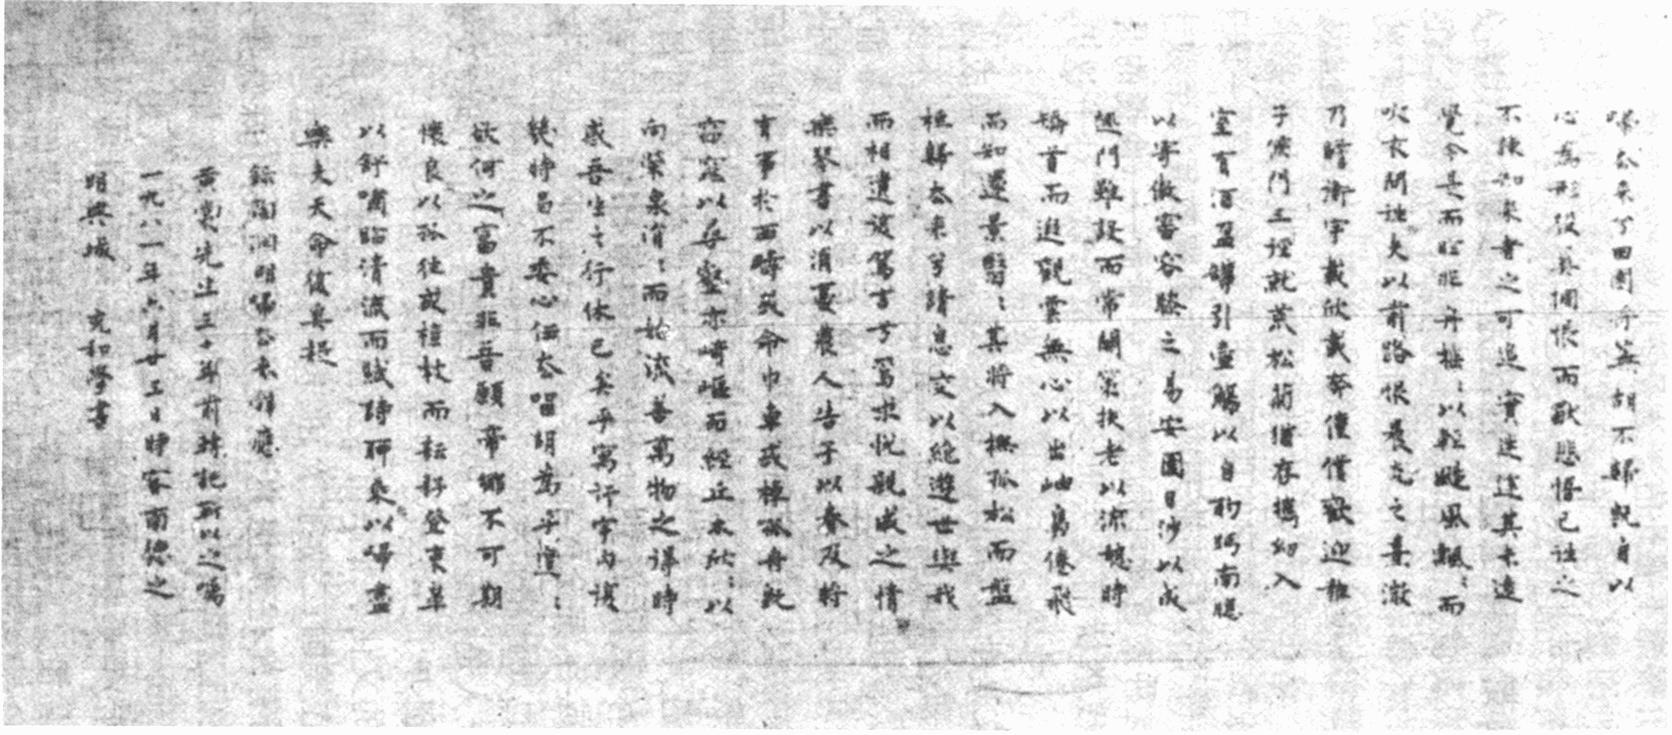 歸去來兮田園將蕪胡不歸既自以
心為形役奚惆悵而獨悲悟已往之
不諫知來者之可追實迷途其未遠
覺今是而昨非舟搖〻以輕颺風飄〻而
吹衣問征夫以前路恨晨光之熹微
乃瞻衡宇載欣載奔僮僕歡迎稚
子候門三徑就荒松菊猶存攜幼入
室有酒盈罇引壺觴以自酌眄南牕
以寄傲審容膝之易安園日涉以成
趣門雖設而常關策扶老以流憩時
矯首而遐觀雲無心以出岫鳥倦飛
而知還景翳〻其將入撫孤松而盤
桓歸去來兮請息交以絕遊世與我
而相遺復駕言兮焉求悅親戚之情
無琴書以消憂農人告予以春及將
有事於西疇或命巾車或棹孤舟既
窈窕以尋壑亦崎嶇而經丘木欣〻以
向榮泉涓〻而始流善萬物之得時
感吾生之行休已矣乎寓形宇內復
幾時曷不委心任去留胡為乎遑〻
欲何之富貴非吾願帝鄉不可期
懷良以孤往或植杖而耘耔登東皋
以舒嘯臨清流而賦詩聊乘以歸盡
樂夫天命復奚疑
錄陶淵明歸去來辭應
黃裳先生三十年前轉託所以之囑
一九八一年六月廿五日時客南德之
明興城 充和學書